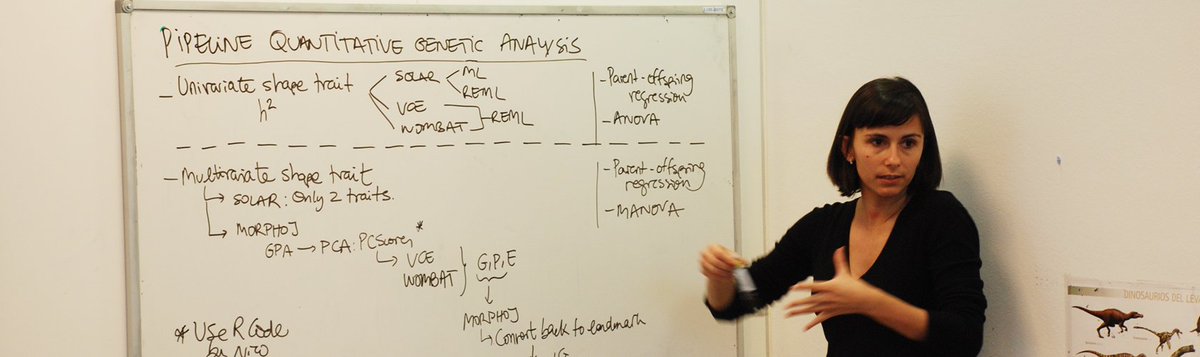 PIPELINE QUANTITATIVE GENETIC ANALYSIS
- Univariate shape trait
h²
SOLAR
ML
REML
VCE
WOMBAT
REML
- Parent-offspring
regression
- ANOVA
- Multivariate shape trait
→ SOLAR: Only 2 traits.
→ MORPHOJ
GPA → PCA: PCScores*
→ VCE
WOMBAT
G,P,E
MORPHOJ
→ Convert back to landmark
- Parent-offspring
regression
- MANOVA
* USE R Code
DINOSAURIOS DEL LEVA